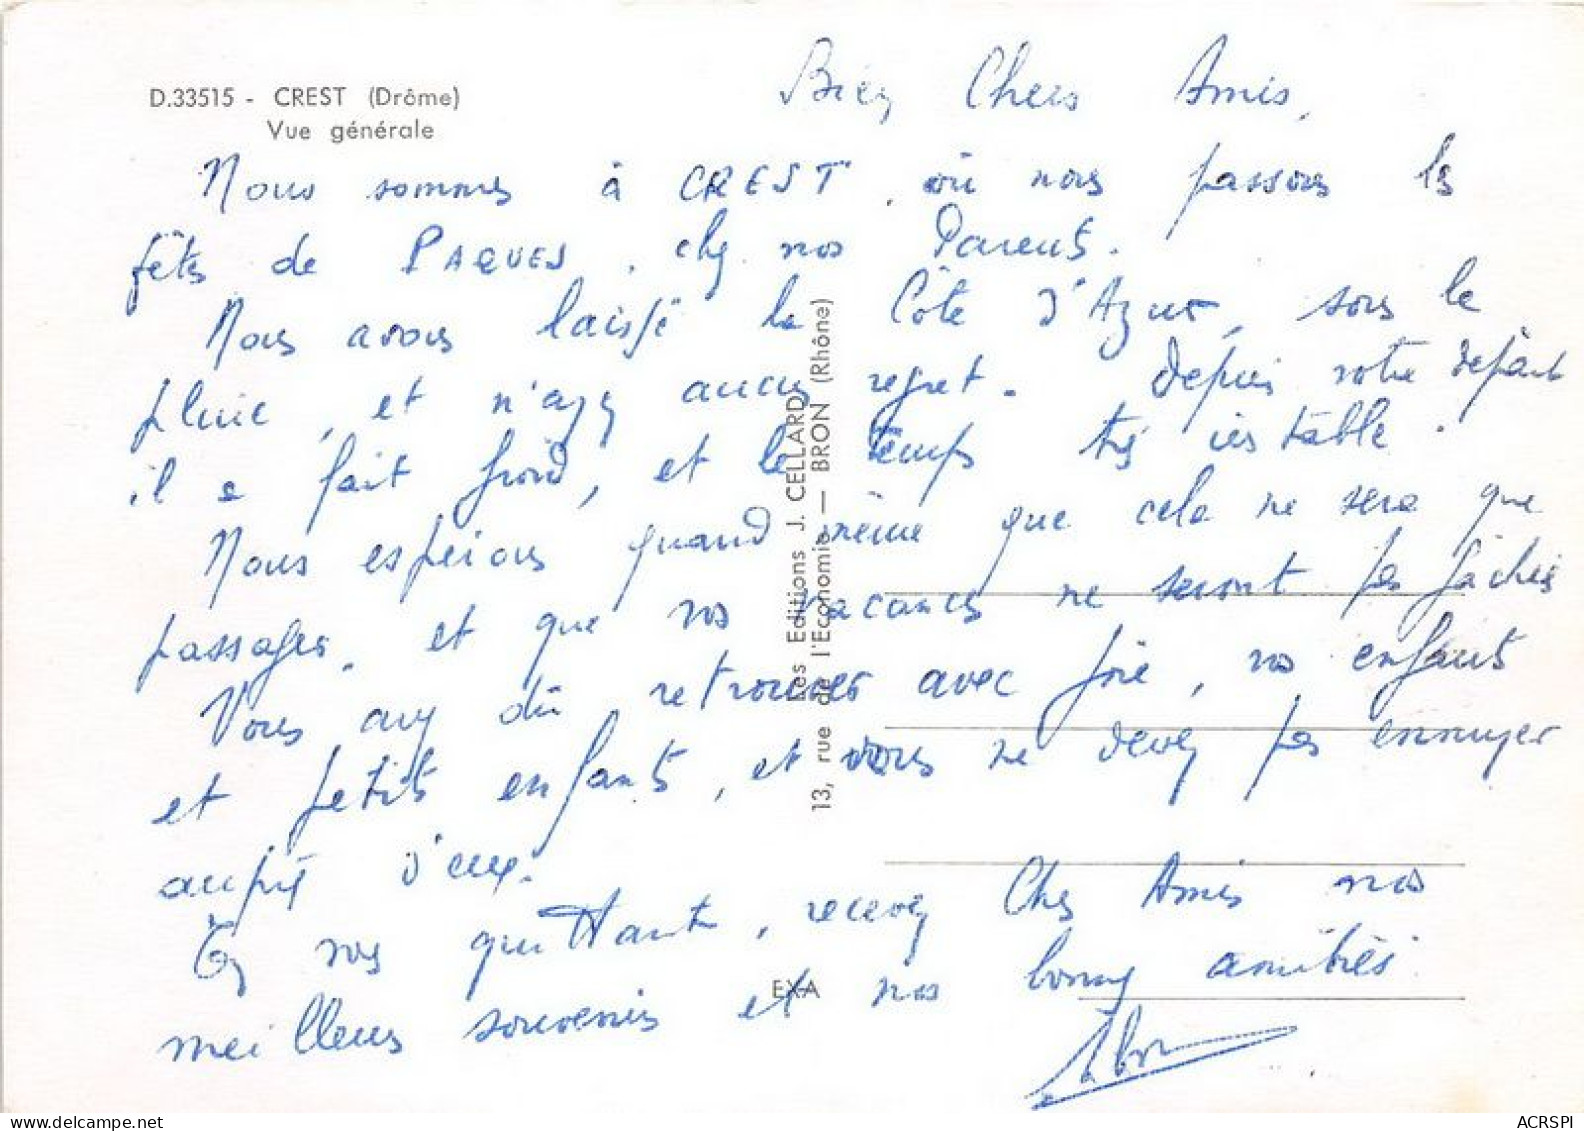 D.33515 - CREST (Drôme)
Vue générale
Bien Chers Amis,
Nous sommes à CREST, où nous passons les
fêtes de PAQUES, chez nos Parents.
Nous avons laissé la Côte d'Azur, sous la
pluie, et n'ayez aucun regret. depuis votre départ
il a fait froid, et le temps très instable.
Nous espérons quand même que cela ne sera que
passager, et que nos vacances ne seront pas gâchées
Vous avez dû retrouver avec joie, vos enfants
et petits enfants, et vous ne devez pas ennuyer
auprès d'eux.
En vous quittant, recevez Chers Amis nos
meilleurs souvenirs et nos bonnes amitiés
Les Editions J. CELLARD
13, rue de l'Economie — BRON (Rhône)
EXA
ACRSPI